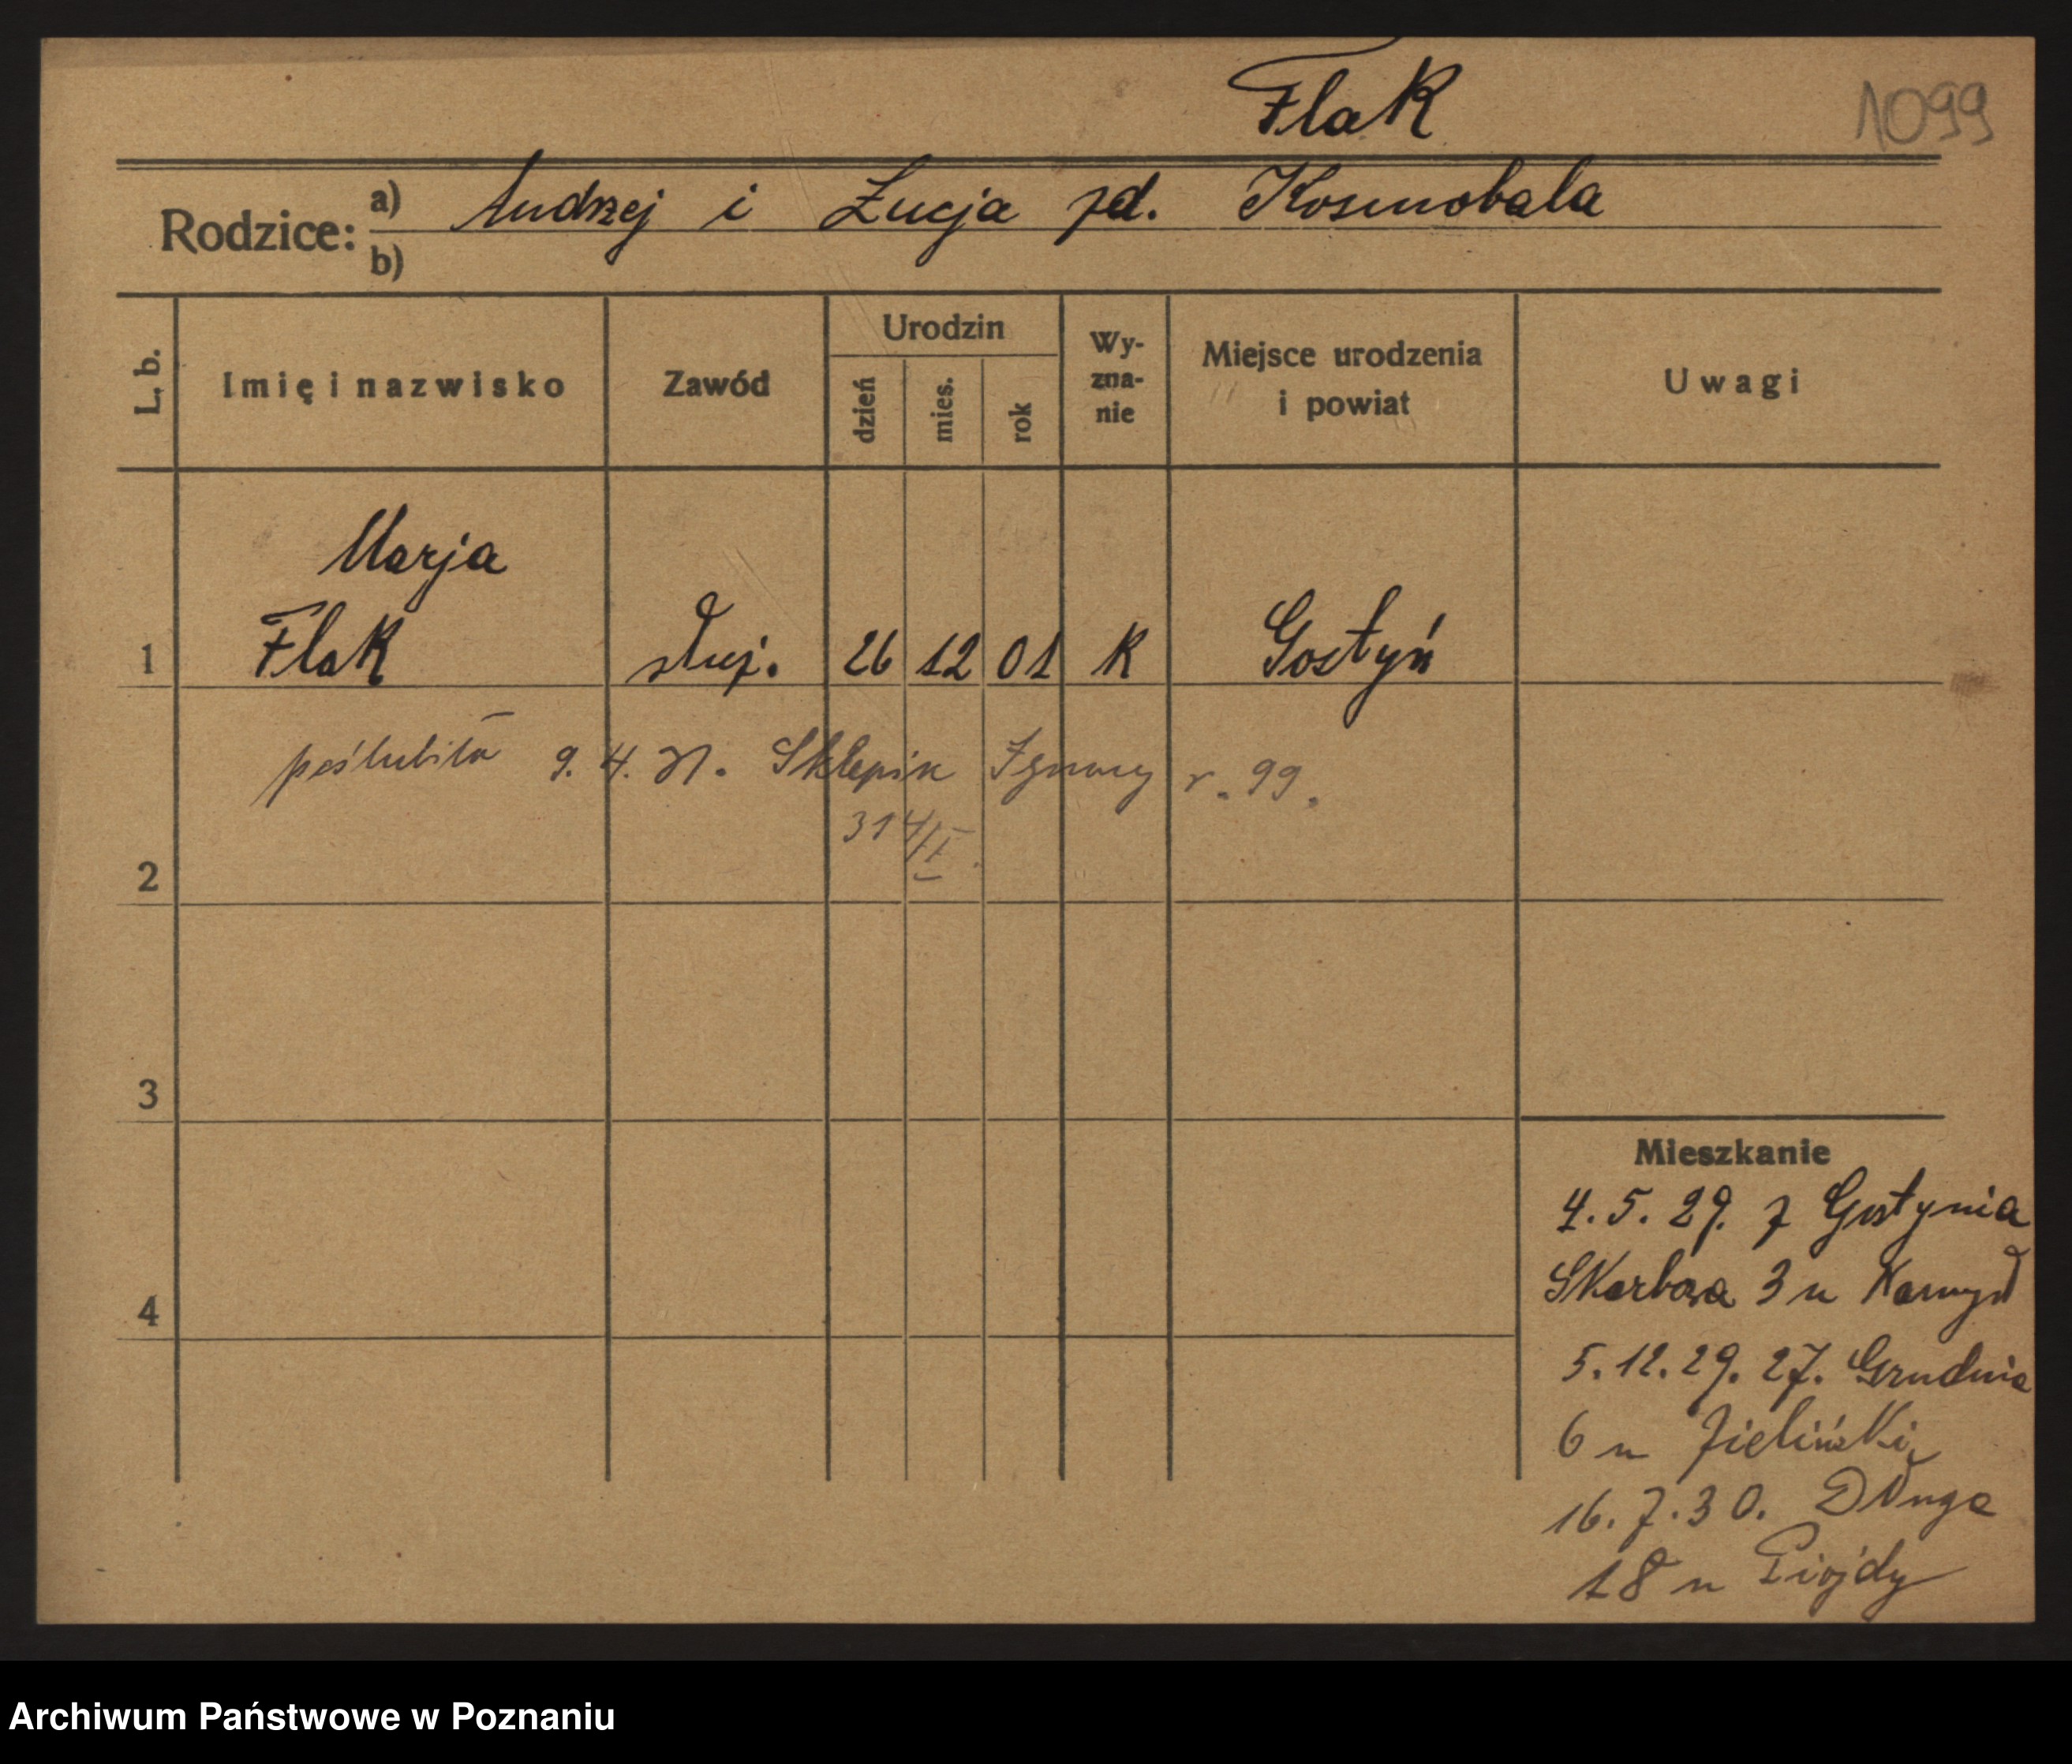 Flak
1099
Rodzice: a) Andrzej i Łucja zd. Kosmobala
b)
L. b.
Imię i nazwisko
Zawód
Urodzin
dzień
mies.
rok
Wy-
zna-
nie
Miejsce urodzenia
i powiat
Uwagi
Marja
1 Flak służ. 26 12 01 K Gostyń
poślubiła 9. 4. 31. Sklepik Ignacy r. 99.
314/I
2
3
4
Mieszkanie
4. 5. 29. z Gostynia
Skarbowa 3 u
5. 12. 29. 27. Grudnia
6 u Zieliński
16. 7. 30. Długa
18 u
Archiwum Państwowe w Poznaniu